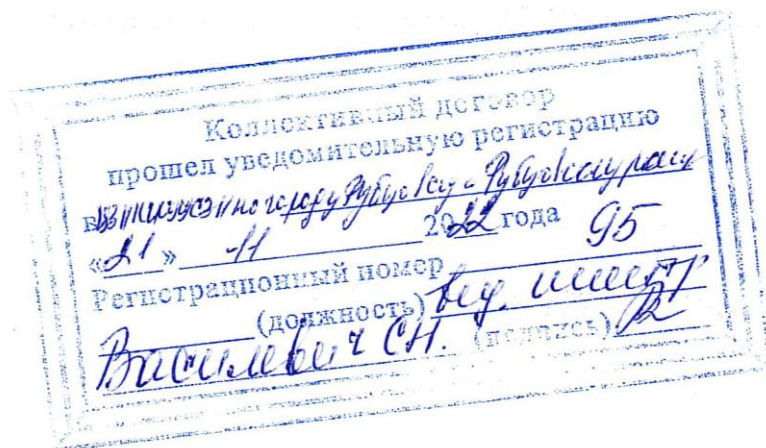 Коллективный договор
прошел уведомительную регистрацию
в городу Рубцовску и Рубцовскому району
«21» 11 2022 года
Регистрационный номер 95
(должность) вед. инспектр
Василевич С.Н. (подпись)